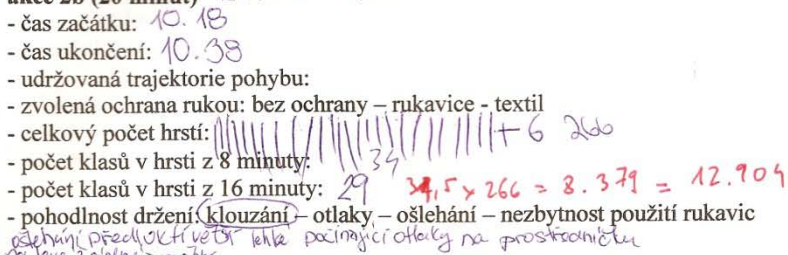 akce 2b (20 minut)
- čas začátku: 10.18
- čas ukončení: 10.38
- udržovaná trajektorie pohybu:
- zvolená ochrana rukou: bez ochrany – rukavice - textil
- celkový počet hrstí: + 6 266
- počet klasů v hrsti z 8 minuty: 34
- počet klasů v hrsti z 16 minuty: 29 31,5 x 266 = 8.379 = 12.904
- pohodlnost držení: klouzání – otlaky – ošlehání – nezbytnost použití rukavic
ošlehání předloktí větší lehké počínající otlaky na prostředníčku